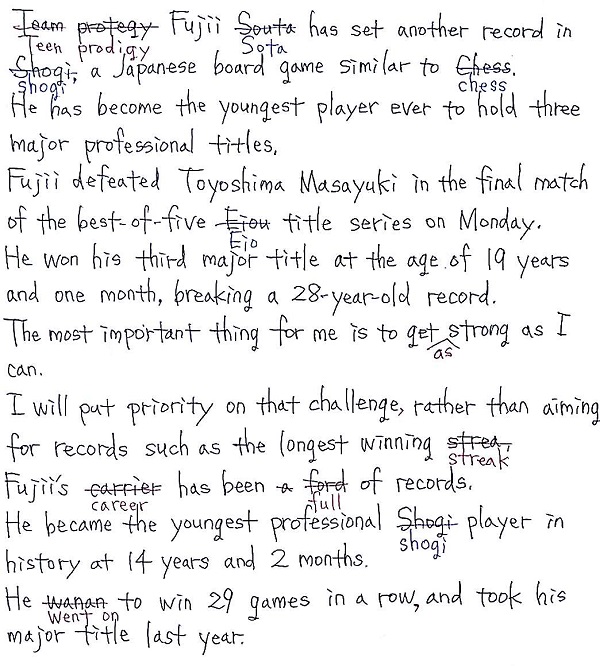 Team protegy Fujii Souta has set another record in
Teen prodigy Sota
Shogi, a Japanese board game similar to Chess.
shogi chess
He has become the youngest player ever to hold three
major professional titles.
Fujii defeated Toyoshima Masayuki in the final match
of the best-of-five Eiou title series on Monday.
Eio
He won his third major title at the age of 19 years
and one month, breaking a 28-year-old record.
The most important thing for me is to get strong as I
as
can.
I will put priority on that challenge, rather than aiming
for records such as the longest winning strea,
streak
Fujii's carrier has been a ford of records.
career full
He became the youngest professional Shogi player in
shogi
history at 14 years and 2 months.
He wanan to win 29 games in a row, and took his
went on
major title last year.